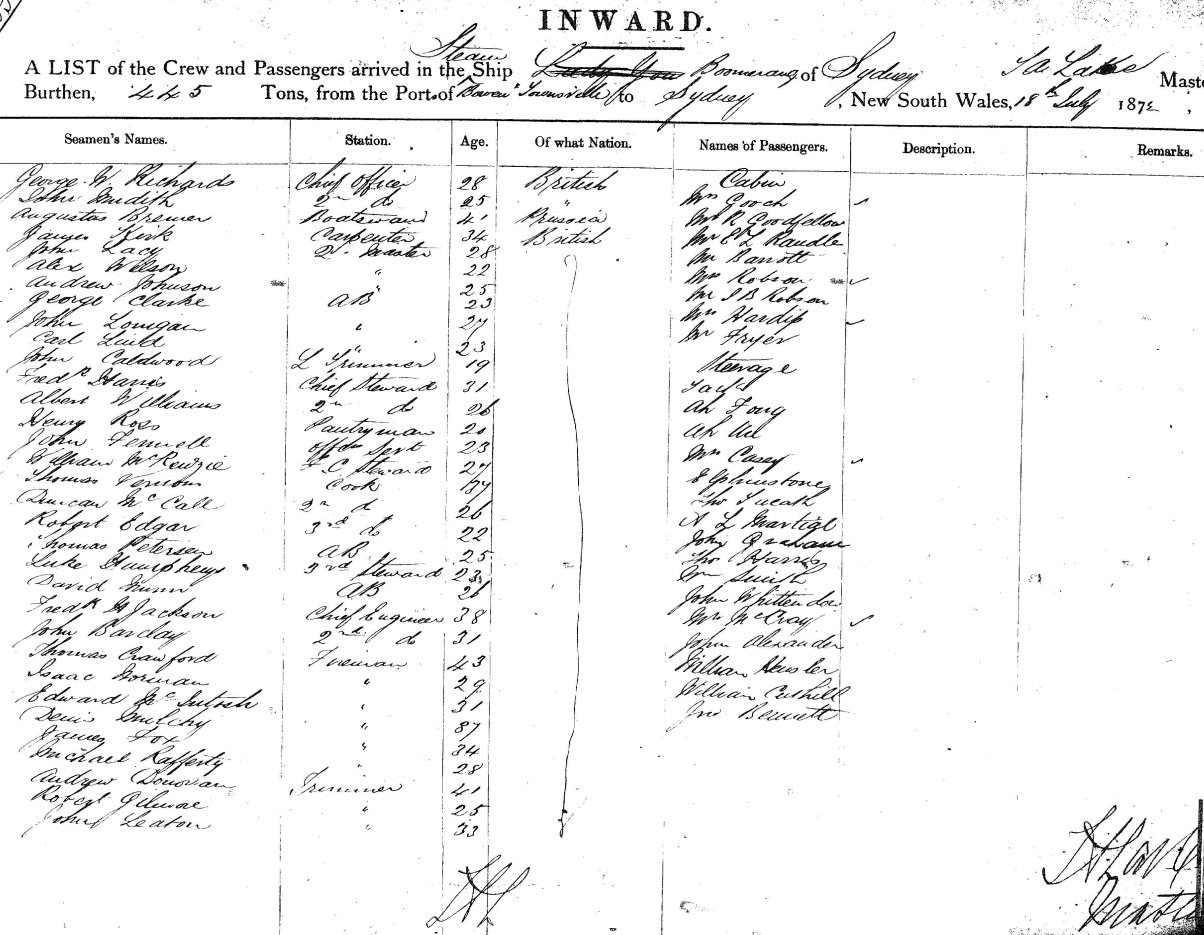 INWARD.
A LIST of the Crew and Passengers arrived in the Steam Ship Boomerang of Sydney Master
Burthen, 445 Tons, from the Port of Bowen Townsville to Sydney, New South Wales, 18th July 1872,
Seamen's Names. Station. Age. Of what Nation. Names of Passengers. Description. Remarks.
George W Richards Chief Officer 28 British Cabin
John 2nd do 25 " Mrs Gooch
Augustus Bremer Boatswain 41 Prussia Mr R Goodfellow
James Kirk Carpenter 34 British Mr E L Randle
John Lacy Qr Master 28 Mr Barrott
Alex Wilson " 22 Mrs Robson
Andrew Johnson " 25 Mr J B Robson
George Clarke AB 23 Mrs Hardip
John Lonigan " 27 Mr Fryer
Carl Lund " 23
John Caldwood L Trimmer 19 Steerage
Fredk Harris Chief Steward 31
Albert Williams 2nd do 26 Ah Fong
Henry Ross Pantryman 20 Ah
John Fennell Offrs Servt 23 Mrs Casey
William McKenzie F. C Steward 27 Elphinstone
Thomas Vernon Cook 37 Thos
Duncan McCall 2n d 26 A L Martial
Robert Edgar 3rd do 22 John Graham
Thomas Petersen AB 25 Thos Harris
Luke Humpheys 3rd Steward 23 Wm Smith
David Nunn AB 26 John Whittendow
Fredk H Jackson Chief Engineer 38 Mrs McCray
John Barclay 2nd do 31 John Alexander
Thomas Crawford Fireman 43 William Hensler
Isaac Gorman " 29 William Cuthill
Edward McIntosh " 31 Jno Bennett
Denis Mulchy " 37
James Fox " 34
Michael Rafferty " 28
Andrew Donovan Trimmer 41
Robert Gilmore " 25
John Leaton " 33